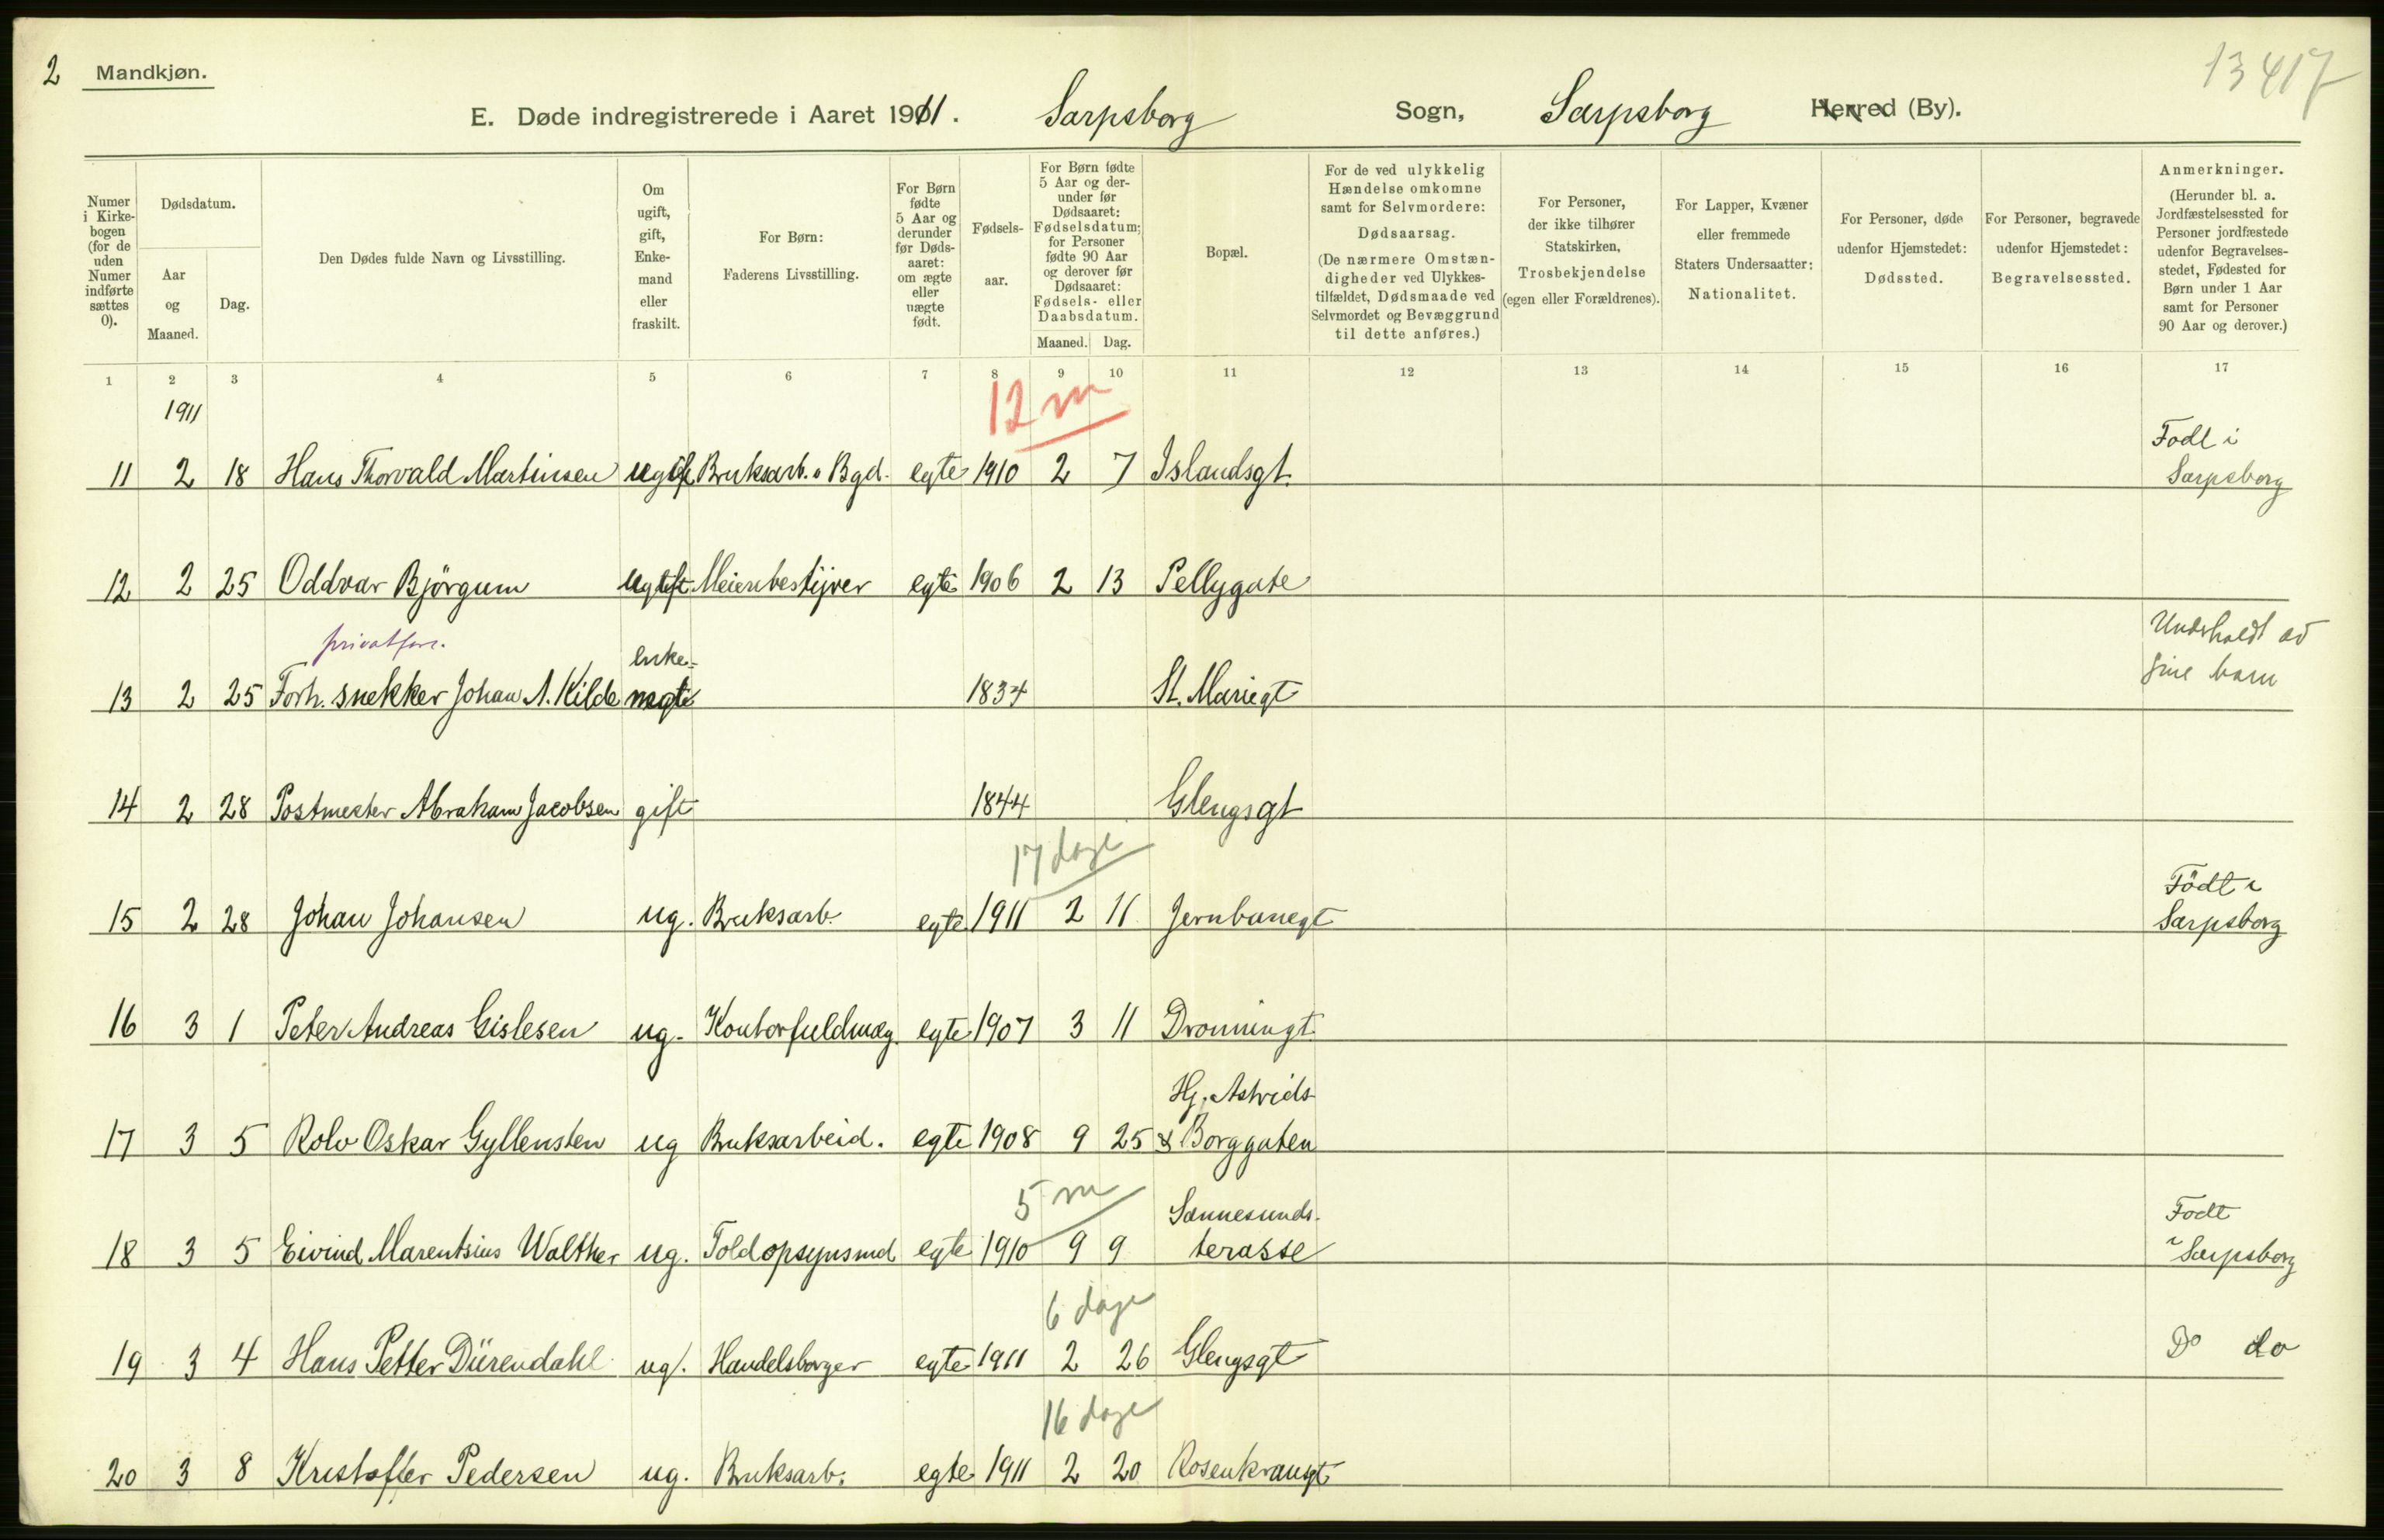 2 Mandkjøn.
13417
E. Døde indregistrerede i Aaret 1911. Sarpsborg Sogn, Sarpsborg Herred (By).
Numer i Kirke-bogen (for de uden Numer indførte sættes 0).
Dødsdatum.
Aar og Maaned.
Dag.
Den Dødes fulde Navn og Livsstilling.
Om ugift, gift, Enke-mand eller fraskilt.
For Børn: Faderens Livsstilling.
For Børn fødte 5 Aar og derunder før Døds-aaret: om ægte eller uægte født.
Fødsels-aar.
For Børn fødte 5 Aar og der-under før Dødsaaret: Fødselsdatum; for Personer fødte 90 Aar og derover før Dødsaaret: Fødsels- eller Daabsdatum.
Maaned. Dag.
Bopæl.
For de ved ulykkelig Hændelse omkomne samt for Selvmordere: Dødsaarsag. (De nærmere Omstæn-digheder ved Ulykkes-tilfældet, Dødsmaade ved Selvmordet og Bevæggrund til dette anføres.)
For Personer, der ikke tilhører Statskirken, Trosbekjendelse (egen eller Forældrenes).
For Lapper, Kvæner eller fremmede Staters Undersaatter: Nationalitet.
For Personer, døde udenfor Hjemstedet: Dødssted.
For Personer, begravede udenfor Hjemstedet: Begravelsessted.
Anmerkninger. (Herunder bl. a. Jordfæstelsessted for Personer jordfæstede udenfor Begravelses-stedet, Fødested for Børn under 1 Aar samt for Personer 90 Aar og derover.)
1 2 3 4 5 6 7 8 9 10 11 12 13 14 15 16 17
1911
12 m
Født i
11 2 18 Hans Thorvald Martinsen ugift Bruksarb. Bgd. egte 1910 2 7 Islandsgt. Sarpsborg
12 2 25 Oddvar Björgum ugift Meieribestijrer egte 1906 2 13 Pellygate
privatfor.
enke-
Underholdt av
13 2 25 Forh. snekker Johan A. Kilde 1834 St. Mariegt sine barn
14 2 28 Postmester Abraham Jacobsen gift 1844 Glengsgt
17 dage
Födt i
15 2 28 Johan Johansen ug. Bruksarb. egte 1911 2 11 Jernbanegt Sarpsborg
16 3 1 Peter Andreas Gislesen ug. Kontorfuldmæg. egte 1907 3 11 Dronningt.
Hj. Astrids
17 3 5 Rolv Oskar Gyllensten ug Bruksarbeid. egte 1908 9 25 & Borggaten
5 m
Sannesunds-
Født
18 3 5 Eivind Marentsius Walther ug. Toldopsynsmd egte 1910 9 9 terasse i Sarpsborg
6 dage
19 3 4 Hans Petter Dürendahl ug. Handelsborger egte 1911 2 26 Glengsgt Do do
16 dage
20 3 8 Kristoffer Pedersen ug. Bruksarb. egte 1911 2 20 Rosenkransgt